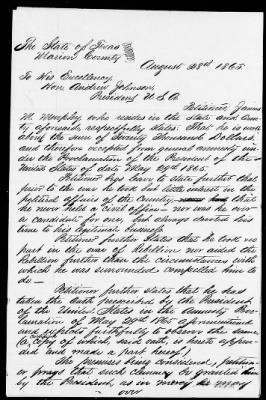 The State of Texas
Marion County
August 28th 1865
To His Excellency
Hon. Andrew Johnson,
President U.S.A.
Petitioner James
M. Murphy who resides in the State and Coun-
ty aforesaid, respectfully states: That he is worth
about the sum of Twenty Thousand Dollars,
and therefore excepted from general amnesty un-
der the Proclamation of the President of the
United States of date May 29th 1865.
Petitioner begs leave to state further that
prior to the war he took but little interest in the
political affairs of the Country, that
he never held a Civil office nor was he ever
a candidate for one, but always devoted his
time to his legitimate business.
Petitioner further states that he took no
part in the war of Rebellion nor aided the
Rebellion further than the circumstances with
which he was surrounded compelled him to
do—
Petitioner further states that he has
taken the oath prescribed by the President
of the United States in the Amnesty Proc-
lamation of May 29th 1865 aforementioned
and expects faithfully to observe the same
(a copy of which, said oath, is hereto appen-
ded and made a part hereof)
The premises being considered, petition-
er prays that such clemency be granted him
by the President, as in mercy he may
over